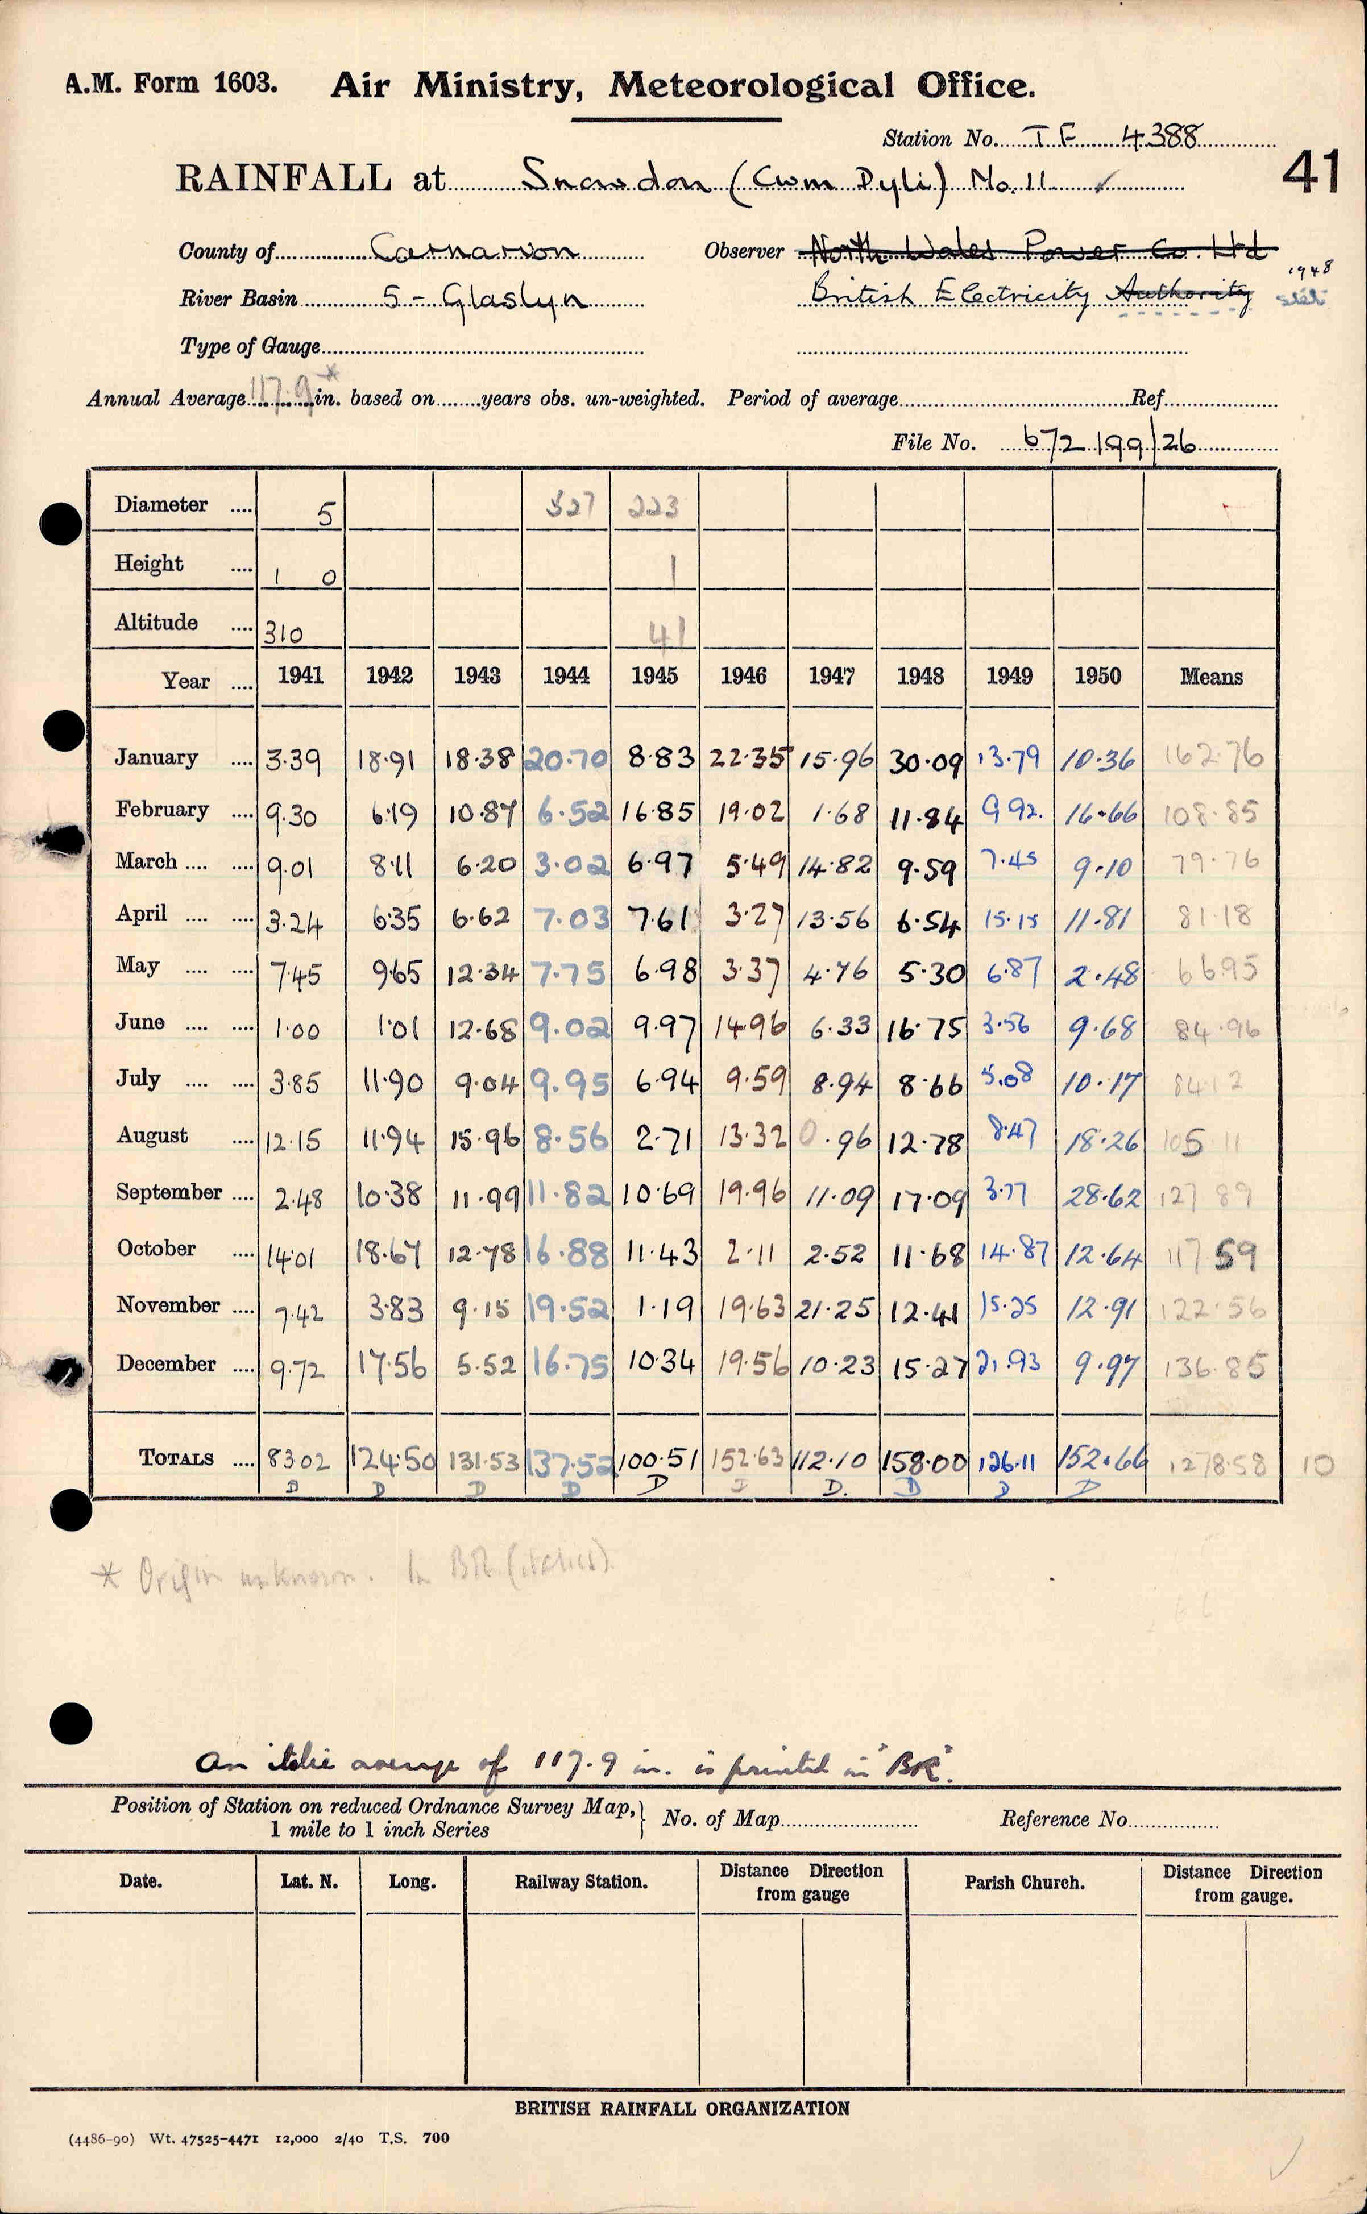 A.M. Form 1603. Air Ministry, Meteorological Office.
Station No. T F 4388
41
RAINFALL at Snowdon (Cwm Dyli) No. 11 ✓
County of Carnarvon Observer North Wales Power Co. Ltd
River Basin 5 - Glaslyn British Electricity Authority 1948
Type of Gauge
Annual Average 117.9* in. based on years obs. un-weighted. Period of average Ref.
File No. 672199/26
Diameter 5 327 223
Height 1 0 1
Altitude 310 41
Year 1941 1942 1943 1944 1945 1946 1947 1948 1949 1950 Means
January 3.39 18.91 18.38 20.70 8.83 22.35 15.96 30.09 13.79 10.36 162.76
February 9.30 6.19 10.87 6.52 16.85 19.02 1.68 11.84 9.92 16.66 108.85
March 9.01 8.11 6.20 3.02 6.97 5.49 14.82 9.59 7.45 9.10 79.76
April 3.24 6.35 6.62 7.03 7.61 3.27 13.56 6.54 15.15 11.81 81.18
May 7.45 9.65 12.34 7.75 6.98 3.37 4.76 5.30 6.87 2.48 66.95
June 1.00 1.01 12.68 9.02 9.97 14.96 6.33 16.75 3.56 9.68 84.96
July 3.85 11.90 9.04 9.95 6.94 9.59 8.94 8.66 5.08 10.17 84.12
August 12.15 11.94 15.96 8.56 2.71 13.32 0.96 12.78 8.47 18.26 105.11
September 2.48 10.38 11.99 11.82 10.69 19.96 11.09 17.09 3.77 28.62 127.89
October 14.01 18.67 12.78 16.88 11.43 2.11 2.52 11.68 14.87 12.64 117.59
November 7.42 3.83 9.15 19.52 1.19 19.63 21.25 12.41 15.25 12.91 122.56
December 9.72 17.56 5.52 16.75 10.34 19.56 10.23 15.27 21.93 9.97 136.85
TOTALS 83.02 124.50 131.53 137.52 100.51 152.63 112.10 158.00 126.11 152.66 1278.58 10
D D D D D D D. D D D
* Origin unknown. In BR (italics).
An italic average of 117.9 in. is printed in "BR".
Position of Station on reduced Ordnance Survey Map, 1 mile to 1 inch Series } No. of Map Reference No.
Date. Lat. N. Long. Railway Station. Distance Direction from gauge Parish Church. Distance Direction from gauge.
BRITISH RAINFALL ORGANIZATION
(4486-90) Wt. 47525-4471 12,000 2/40 T.S. 700